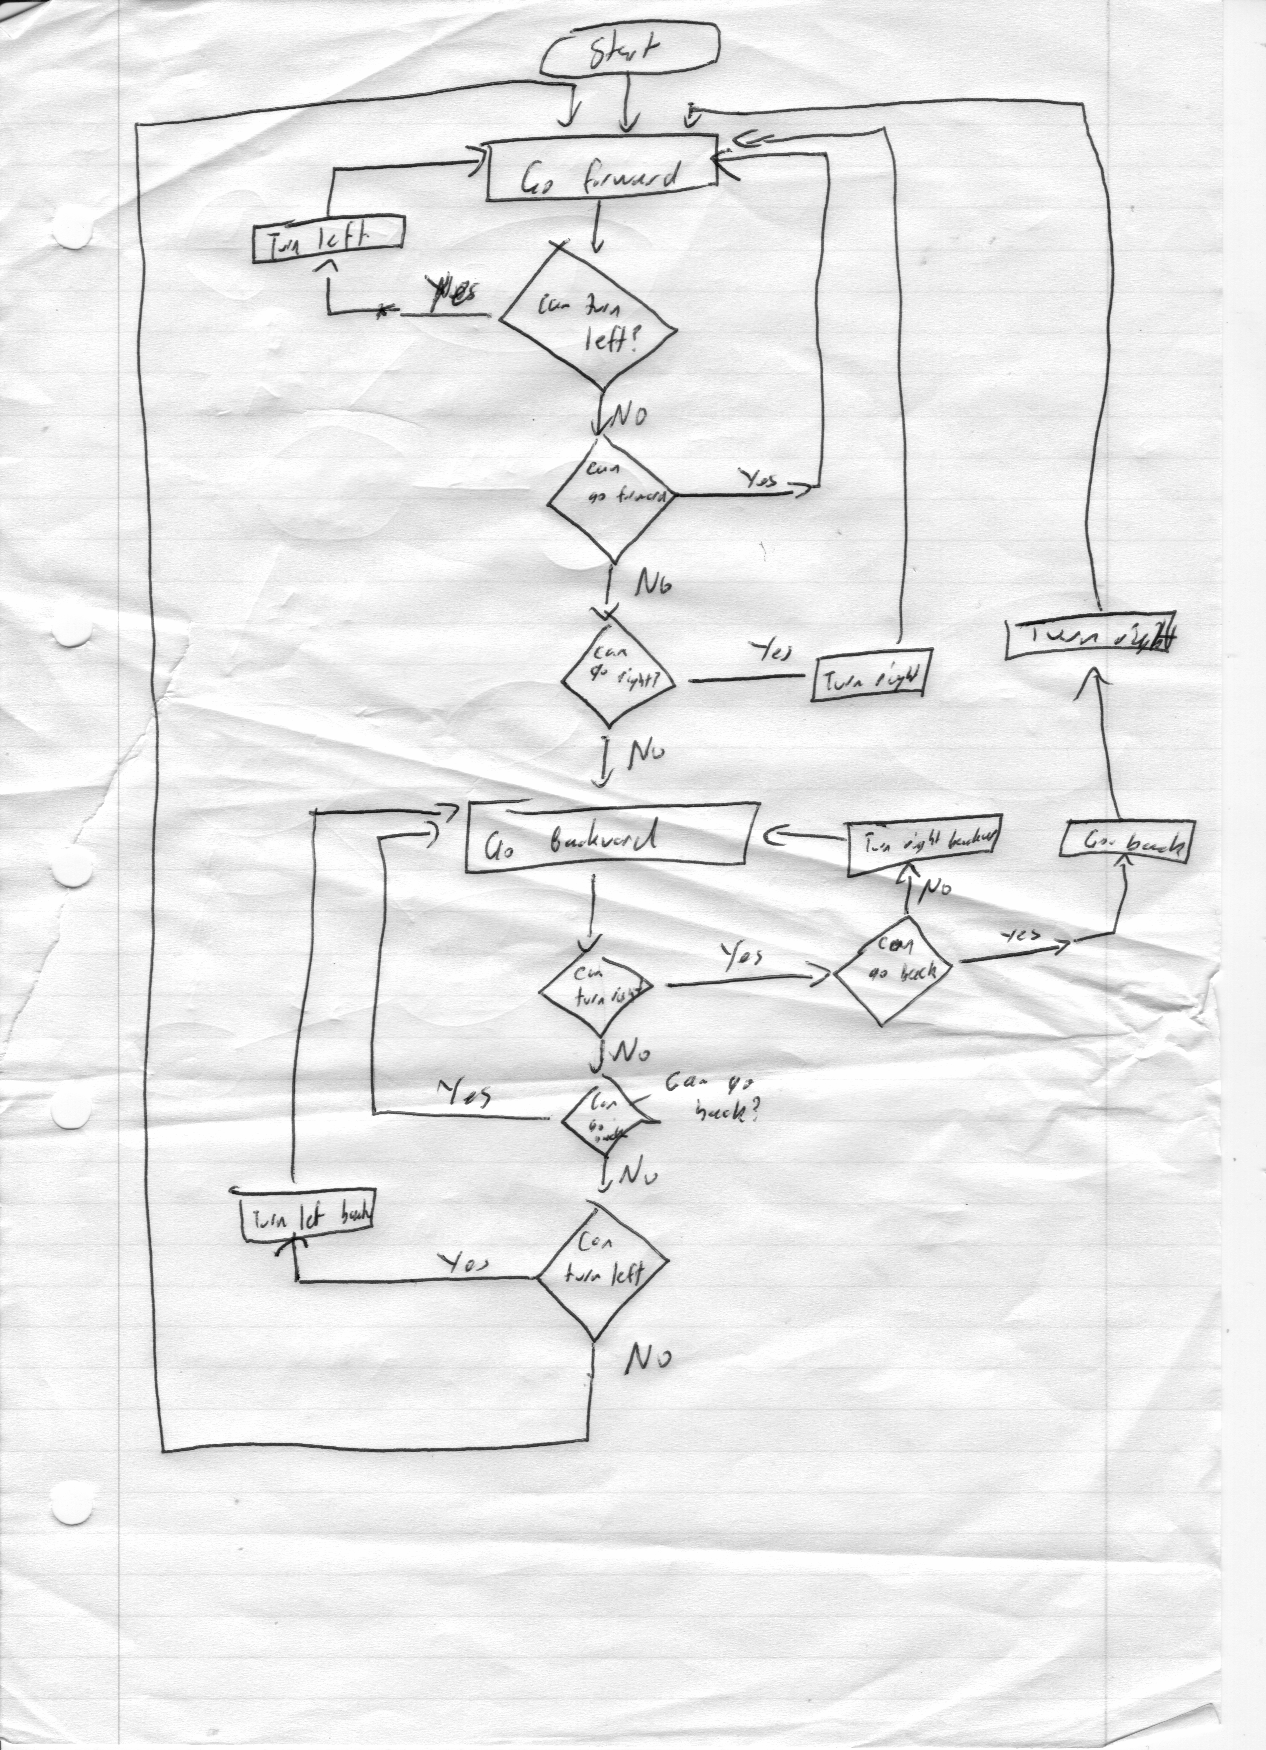 Start
Go forward
Turn left
Yes
can turn
left?
No
can
go forward
Yes
No
can
go right?
Yes
Turn right
Turn right
No
Go Backward
Turn right backwar
Go back
No
can
turn right
Yes
can
go back
Yes
No
Can
go
back
Can go
back?
Yes
No
Turn left back
Can
turn left
Yes
No